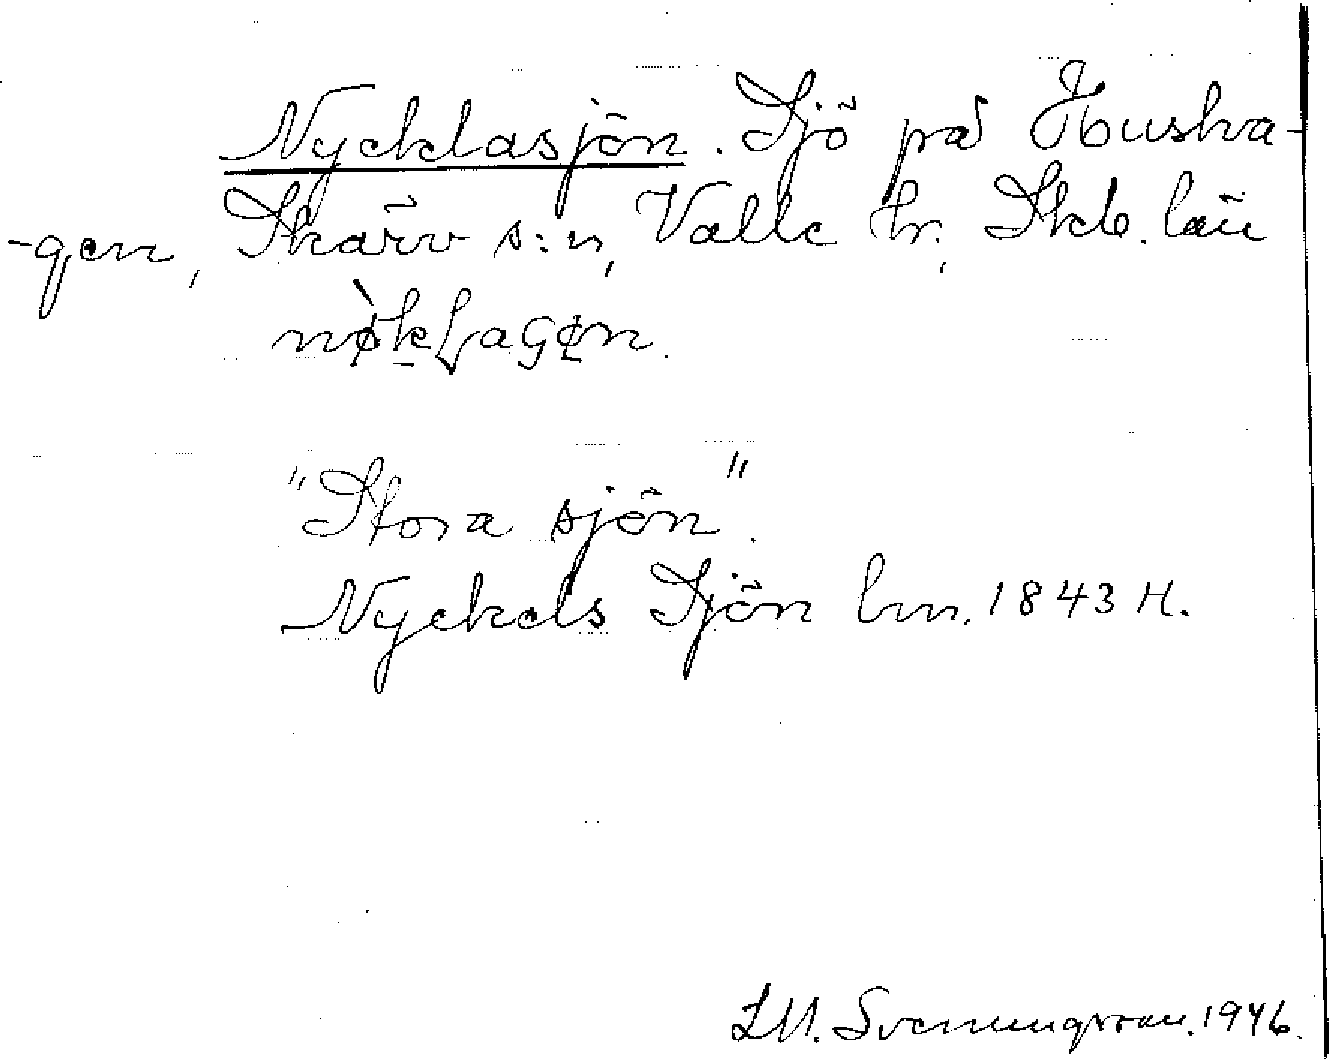 Nycklasjön. Sjö på Husha-
-gen, Skärv s:n, Valle hr, Skb. län
"Stora sjön".
Nyckels Sjön lm. 1843 H.
L.M. Svenungsson. 1946.